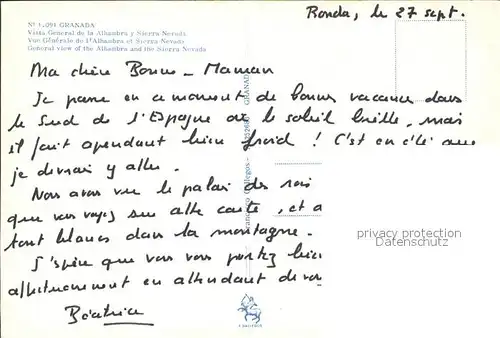 Nº 1.091 GRANADA
Vista General de la Alhambra y Sierra Nevada
Vue Générale de l'Alhambra et Sierra Nevada
General view of the Alhambra and the Sierra Nevada
Ronda, le 27 sept.
Ma chère Bonne-Maman
Je passe en ce moment de bonnes vacances dans
le Sud de l'Espagne où le soleil brille, mais
il fait cependant bien froid ! C'est en été que
je devrais y aller.
Nous avons vu le palais des rois
que vous voyez sur cette carte, et
tout blancs dans la montagne.
J'espère que vous vous portez bien
affectueusement en attendant de
Béatrice
GRANADA
Gallegos
privacy protection
Datenschutz